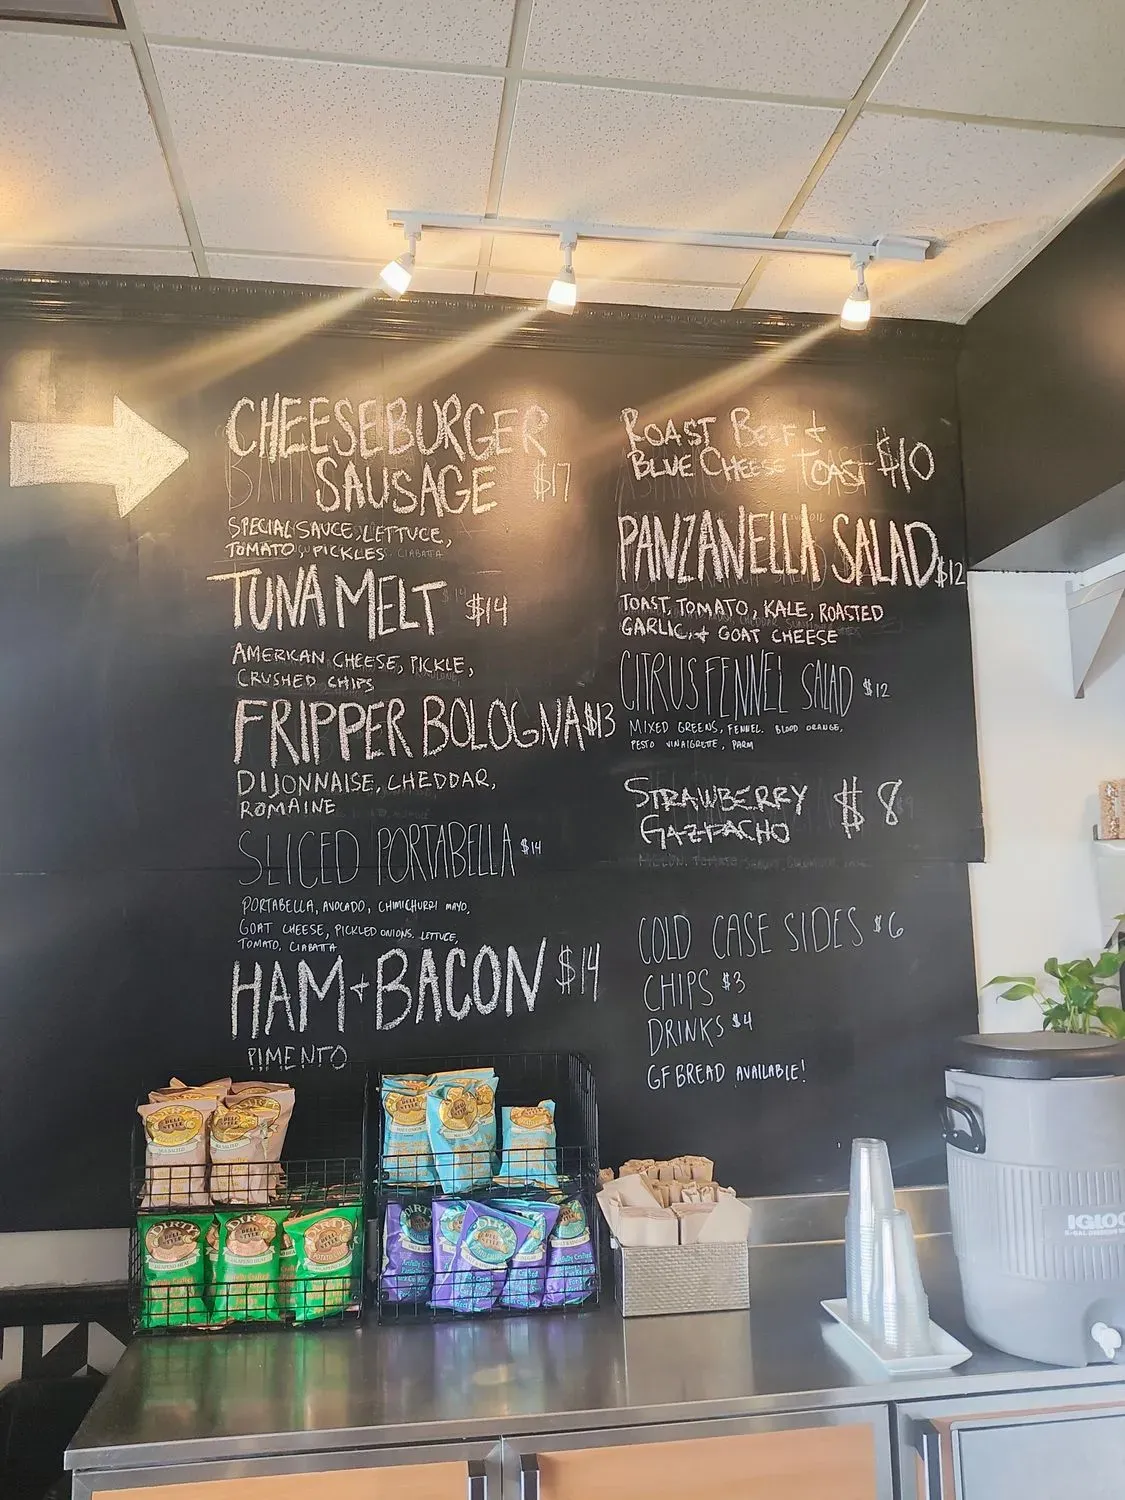 CHEESEBURGER
SAUSAGE $17
SPECIAL SAUCE, LETTUCE,
TOMATO, PICKLES CIABATTA
TUNA MELT $14
AMERICAN CHEESE, PICKLE,
CRUSHED CHIPS
FRIPPER BOLOGNA $13
DIJONNAISE, CHEDDAR,
ROMAINE
SLICED PORTABELLA $14
PORTABELLA, AVOCADO, CHIMICHURRI MAYO,
GOAT CHEESE, PICKLED ONIONS. LETTUCE,
TOMATO, CIABATTA
HAM + BACON $14
PIMENTO
ROAST BEEF +
BLUE CHEESE TOAST $10
PANZANELLA SALAD $12
TOAST, TOMATO, KALE, ROASTED
GARLIC, + GOAT CHEESE
CITRUS FENNEL SALAD $12
MIXED GREENS, FENNEL. BLOOD ORANGE,
PESTO VINAIGRETTE, PARM
STRAWBERRY $8
GAZPACHO
COLD CASE SIDES $6
CHIPS $3
DRINKS $4
GF BREAD AVAILABLE!
DIRTY
DIRTY
DIRTY
DIRTY
IGLOO